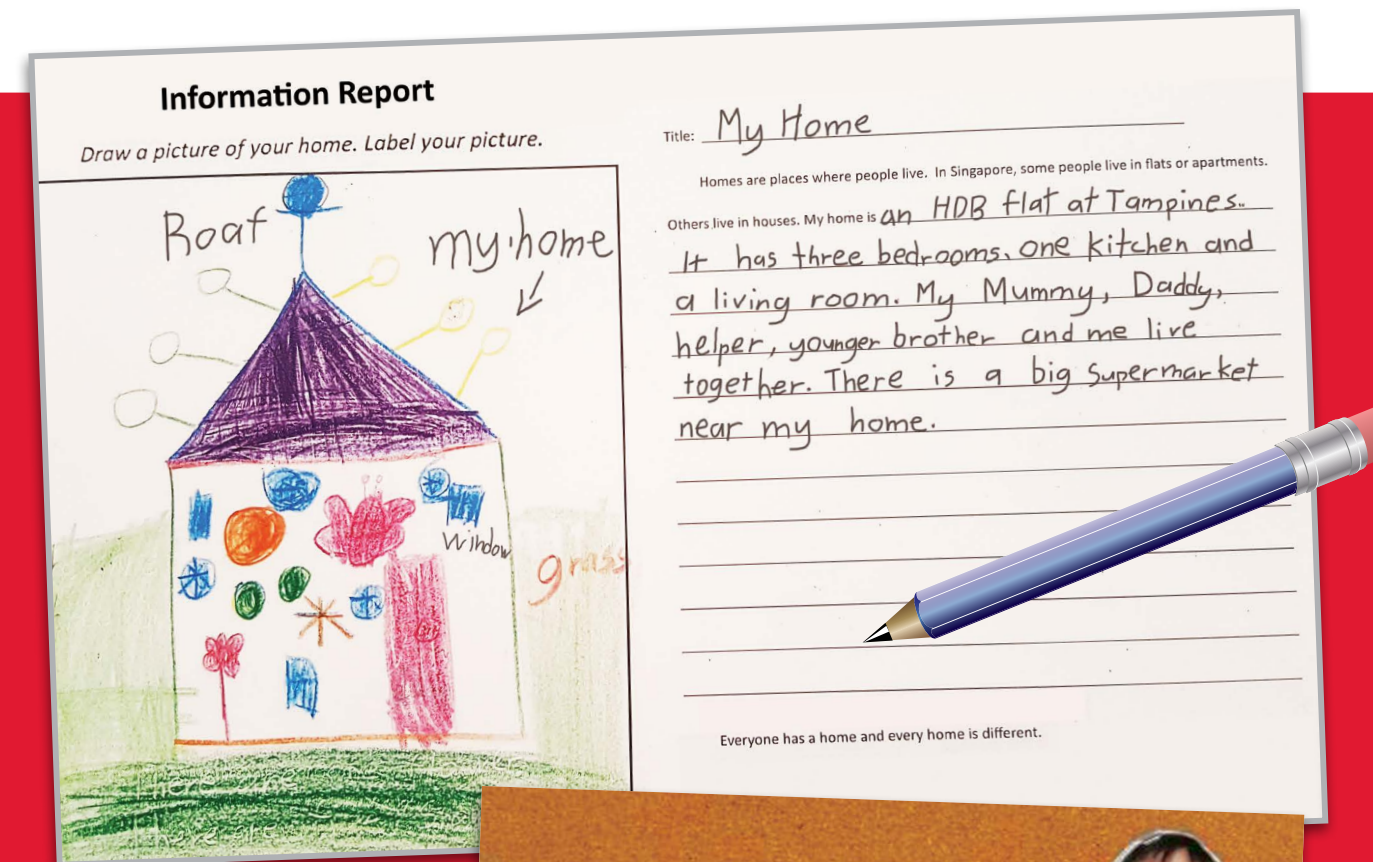 Information Report
Draw a picture of your home. Label your picture.
Roaf
my home
window
grass
Title: My Home
Homes are places where people live. In Singapore, some people live in flats or apartments.
Others live in houses. My home is an HDB flat at Tampines.
It has three bedrooms, one kitchen and
a living room. My Mummy, Daddy,
helper, younger brother and me live
together. There is a big supermarket
near my home.
Everyone has a home and every home is different.